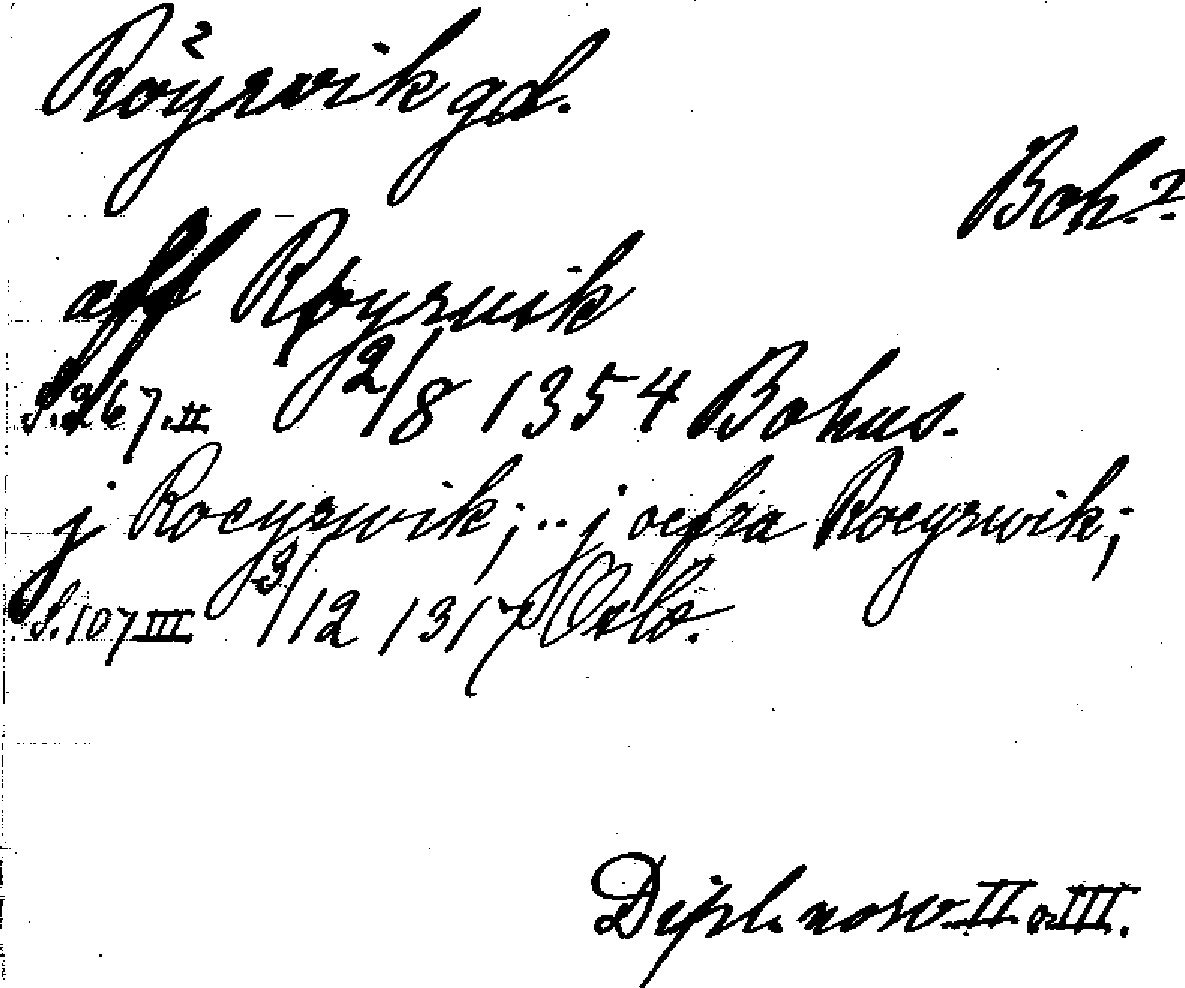 Röyrvik gd.
Boh.?
aff Røyrwik
S. 267. II 2/8 1354 Bohus.
j Roeyrwik; .. j oefra Roeyrwik;
S. 107 III 3/12 1317 Oslo.
Dipl. norv. II o. III.